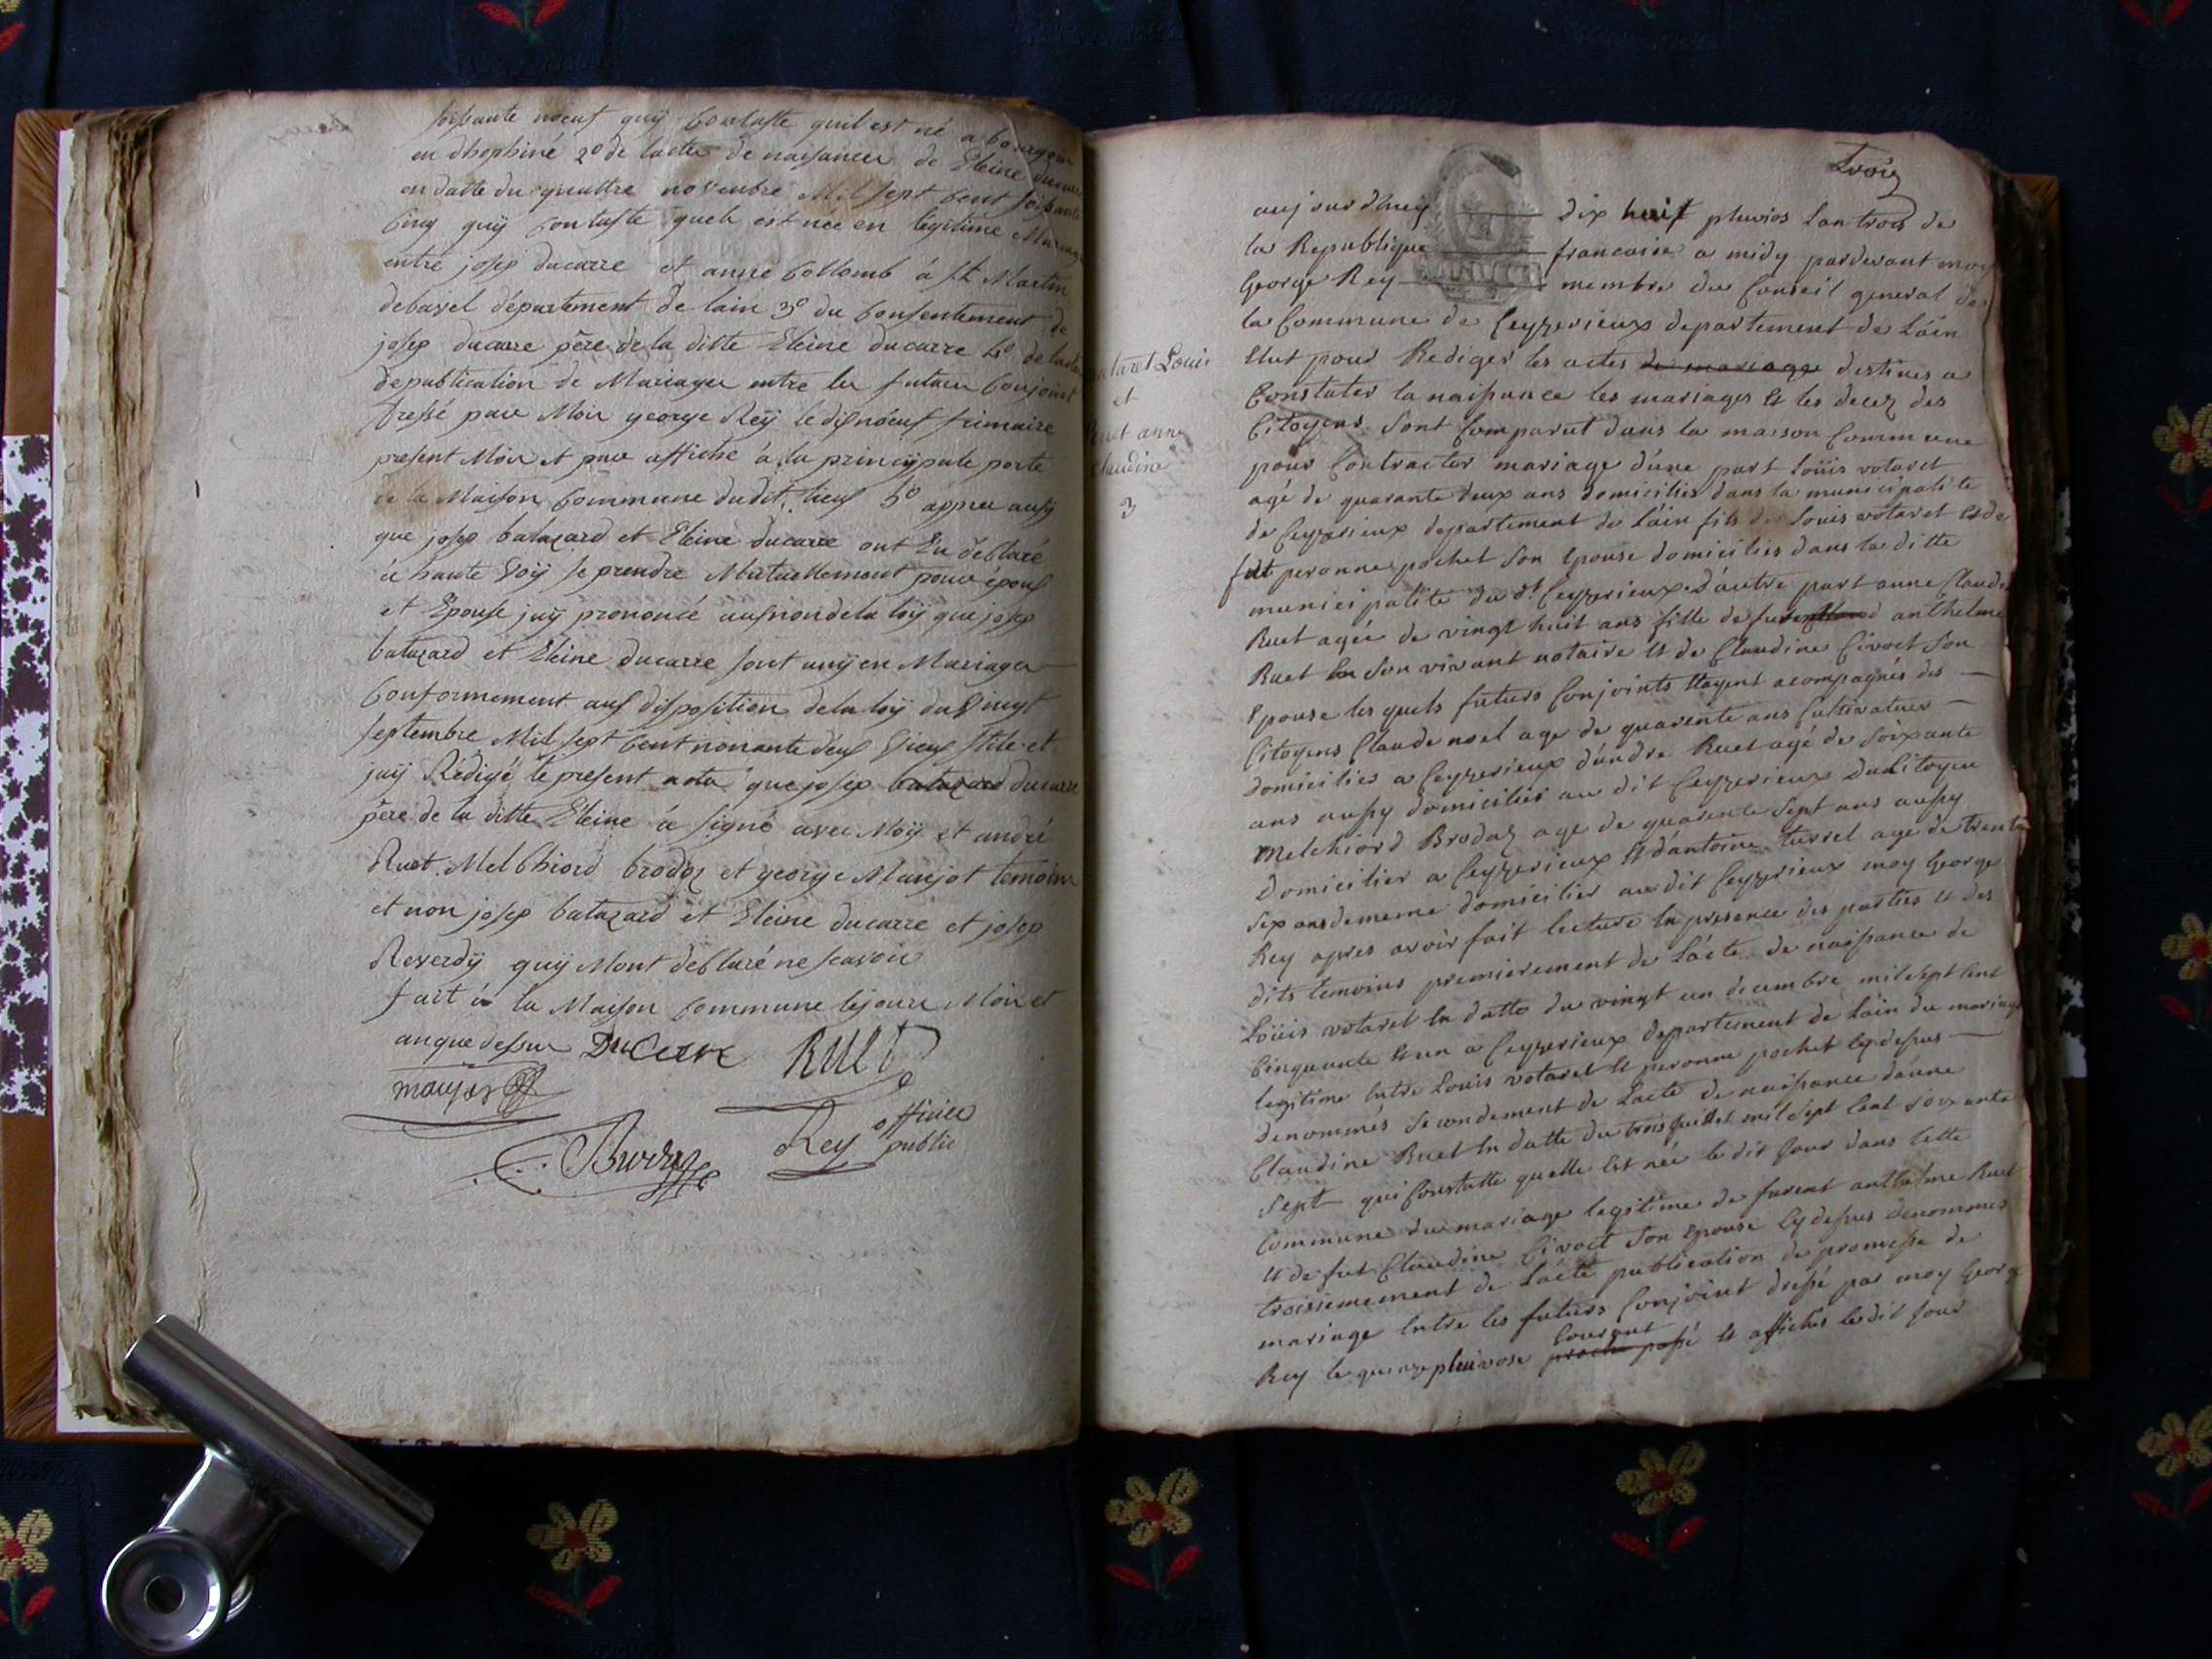 soissante noeuf quÿ Contaste quil est né a bourgoin
en dhophiné 2° de lacte de naissance de Eleine ducarre
en datte du quattre novembre Mil sept Cent soissante
Cinq quÿ Contaste quelt est née en legitime Mariage
entre josep ducarre et anne Collomb á St Martin
debavel département de lain 3° du Consentement de
josep ducarre père de la ditte Eleine ducarre 4° de lacte
de publication de Mariage entre les futeur Conjoint
dressé par Moir george Reÿ le disnoeuf frimaire
present Moir et par affiche á la principale porte
de la Maison Commune dudit lieux 5° appres ausy
que josep batazard et Eleine ducarre ont Eu déClaré
a haute Voÿ se prendre Mutuellement pour époux
et Epouse jaÿ prononcé aus nom de la loÿ que josep
batazard et Eleine ducarre sont unÿ en Mariage
Conformement aus disposition de la loÿ du Vingt
septembre Mil sept Cent nonante deux Vieux stile et
jaÿ Rédigé le present acte que josep batazard ducarre
père de la ditte Eleine á signé avec Moÿ et andré
Ruet Melchiord brodoz et george Maujot temoins
et non josep batazard et Eleine ducarre et josep
Reverdÿ quÿ Mont déClaré ne scavoir
fait á la Maison Commune le jour Moir et
an que dessus DuCarre RUET
maujot
Brodaz Rey officier
public
Trois
aujourdhuy dix huit pluvios lan trois de
la Republique francaise a midy pardevant moy
George Rey membre du Conseil general de
la Commune de Ceyzerieux departement de Lain
Elut pour Rediger les actes de mariage destines a
Constater la naissance les mariages et les decez des
Citoyens sont Comparut dans la maison Commune
pour Contracter mariage d'une part Loüis votaret
agé de quarante deux ans domicilies dans la municipalite
de Ceyzerieux departement de Lain fils de Louis votaret et de
fut peronne pochet son Epouse domicilies dans la ditte
municipalité du dt Ceyzerieux d'autre part anne Claudi
Ruet agée de vingt huit ans fille de fut anthelme
Ruet En son vivant notaire et de Claudine Civoct son
Epouse lesquels futurs Conjoints Etayent acompagnés des
Citoyens Claude noel age de quarente ans Cultivateur
domicilies a Ceyzerieux d'andre Ruet agé de soixante
ans aussy domiciliés au dit Ceyzerieux du Citoyen
Melchiord Brodaz age de quarente sept ans aussy
Domicilier a Ceyzerieux et d'antoine turrel age de trente
six ans dememe domicilier audit Ceyzerieux moy George
Rey apres avoir fait lecture En presence des parties et des
dits temoins premierement de Lacte de naissance de
Loüis votaret En datte du vingt un decembre mil sept Cent
Cinquante et un a Ceyzerieux departement de Lain du mariage
legitime Entre Louis votaret et peronne pochet Cy dessus
denommés secondement de Lacte de naissance danne
Claudine Ruet En datte du trois juillet mil sept Cent soixante
sept qui Constatte quelle Est née le dit jour dans Cette
Commune du mariage legitime de anthelme Ruet
et de fut Claudine Civoct son Epouse Cy dessus denommes
troisiemement de Lacte publication de promesse de
mariage Entre les futurs Conjoint dressé par moy George
Courant
Rey le quinze pluivose proche passé et affiches ledit jour
Louis
et
Ruet anne
Claudine
3